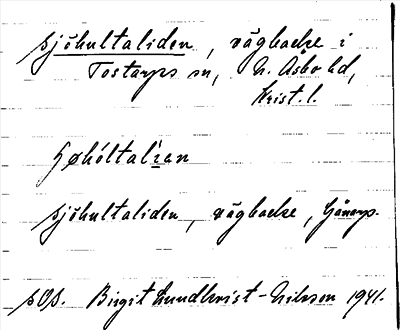 Sjöhultaliden, vägbacke i
Tostarps sn, N. Åsbo hd,
Krist. l.
sjöhultaliden, vägbacke, Gånarp.
Birgit Lundkvist-Nilsson 1941.